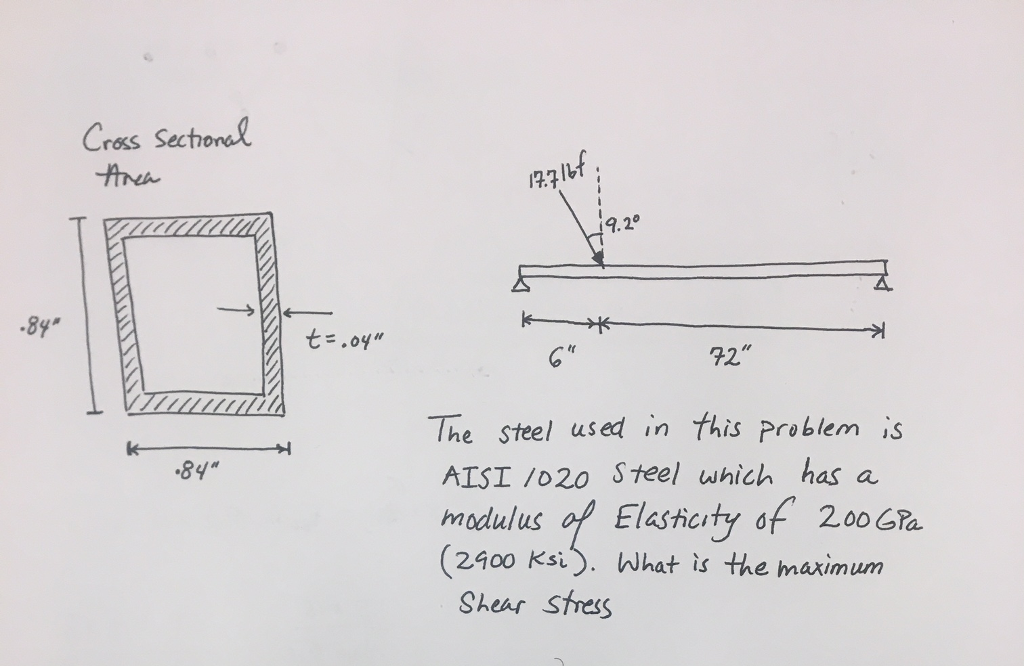 Cross Sectional
Area
.84"
t=.04"
.84"
17.7 lbf
9.2°
6"
72"
The steel used in this problem is
AISI 1020 Steel which has a
modulus of Elasticity of 200GPa
(2900 Ksi). What is the maximum
Shear stress